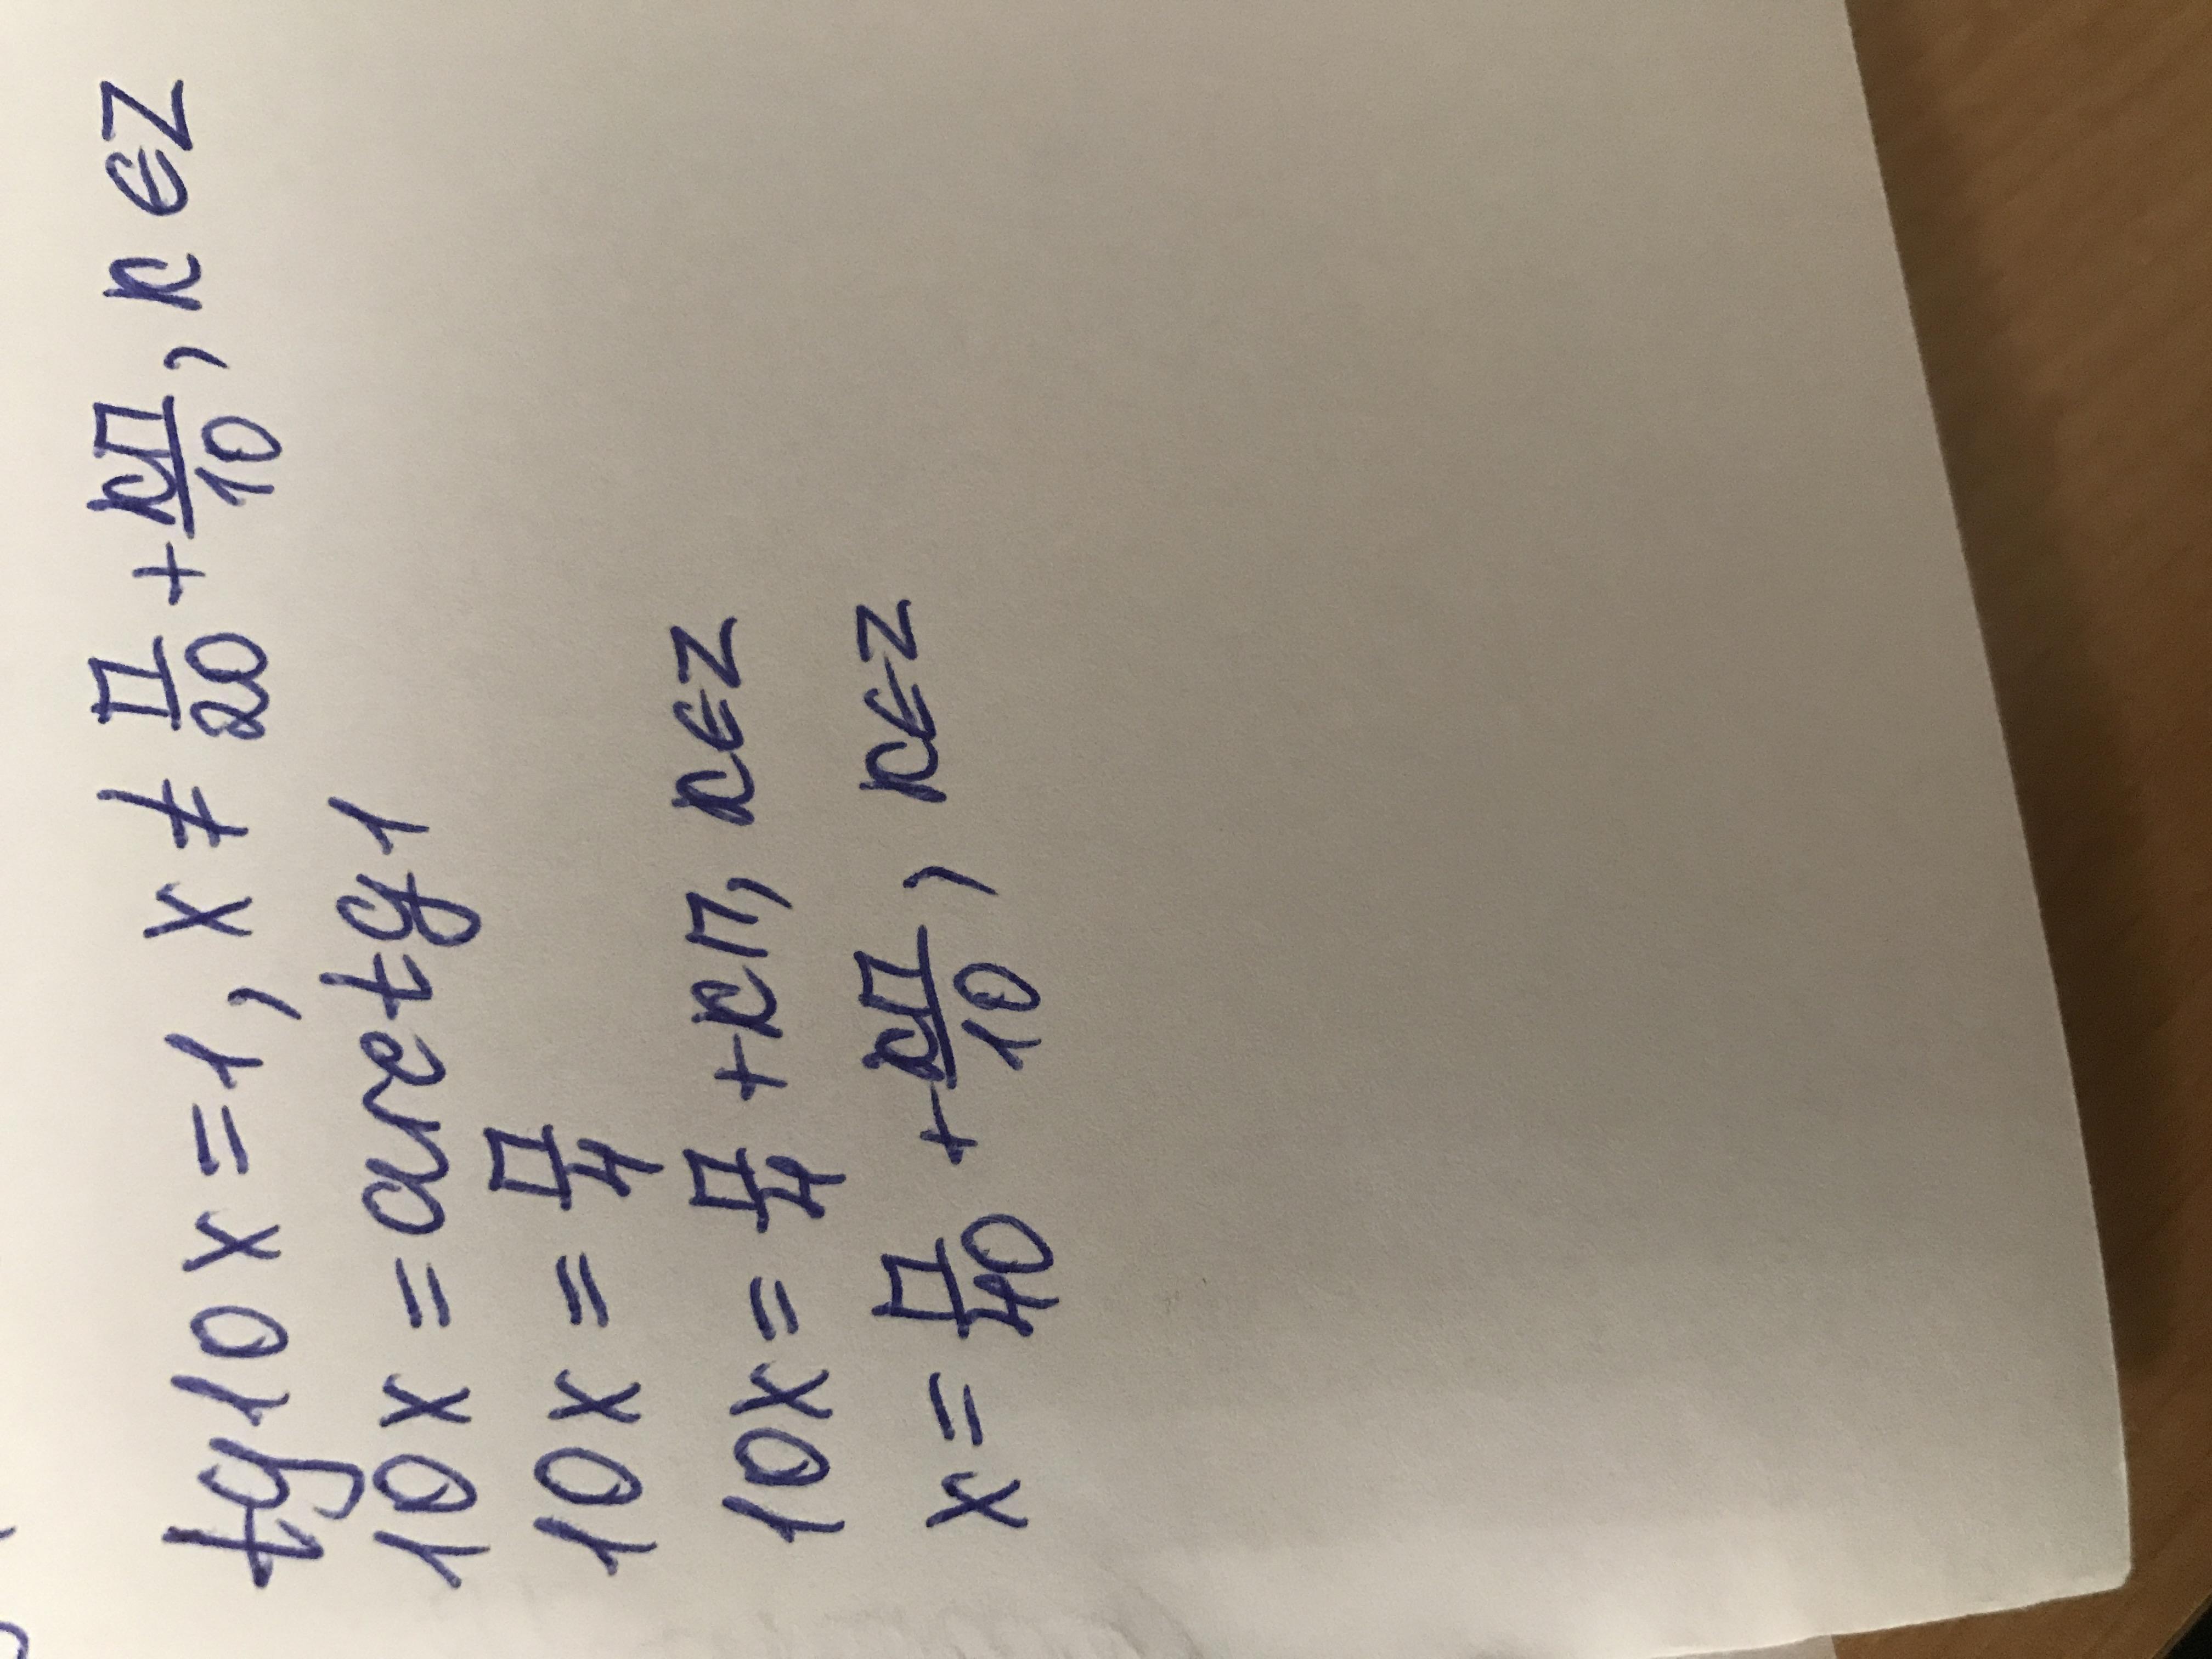 tg 10x = 1, x ≠ π/20 + кπ/10, к ∈ Z
10x = arctg 1
10x = π/4
10x = π/4 + кπ, к ∈ Z
x = π/40 + кπ/10, к ∈ Z